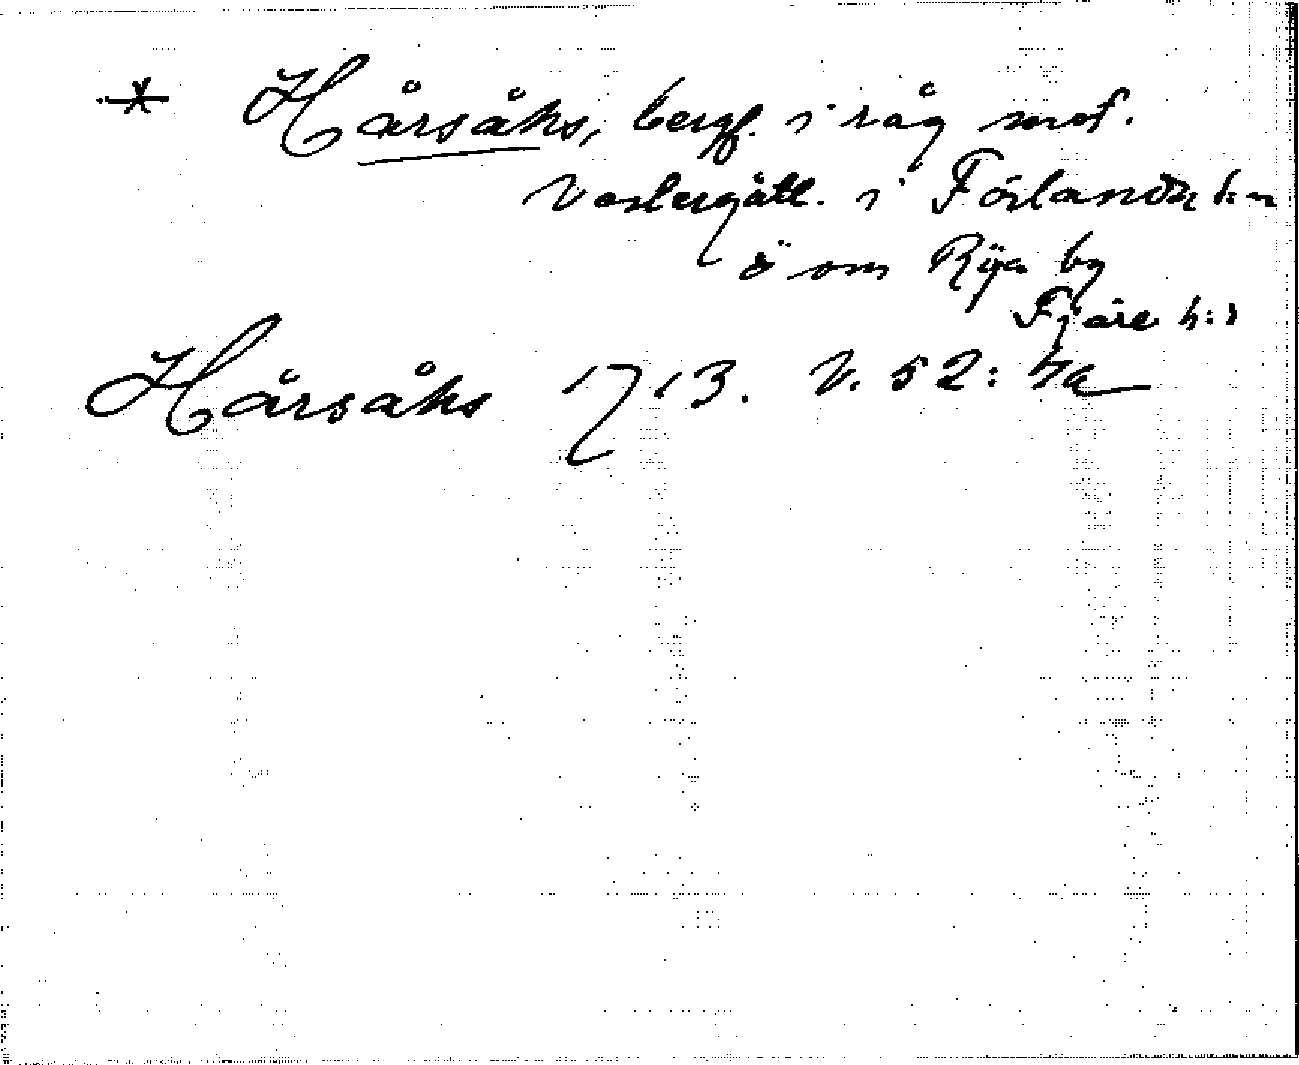 * Hårsåks, bergf. i råg mot.
Västergötl. i Förlanda s:n
ö om Rya by
Fjäre h:d
Hårsåks 1713. V. 52: 4a